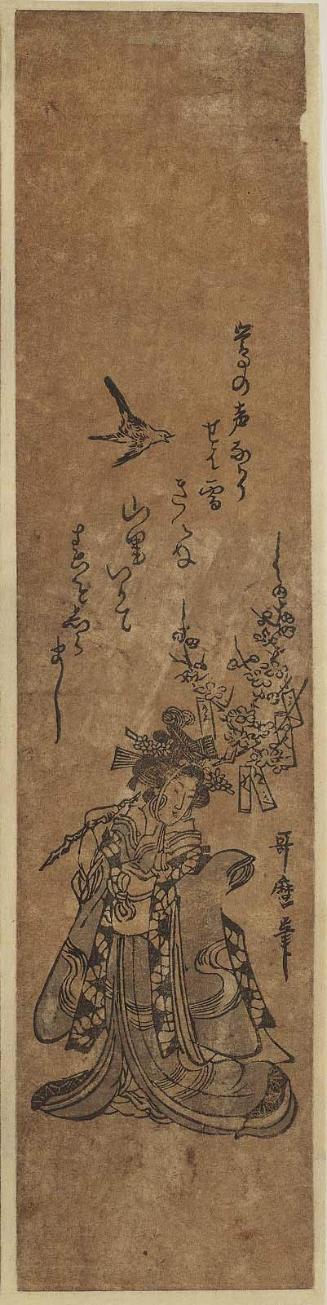 鶯の声なかり
せは雪
きえぬ
山里いかて
はるをしら
まし
哥麿筆